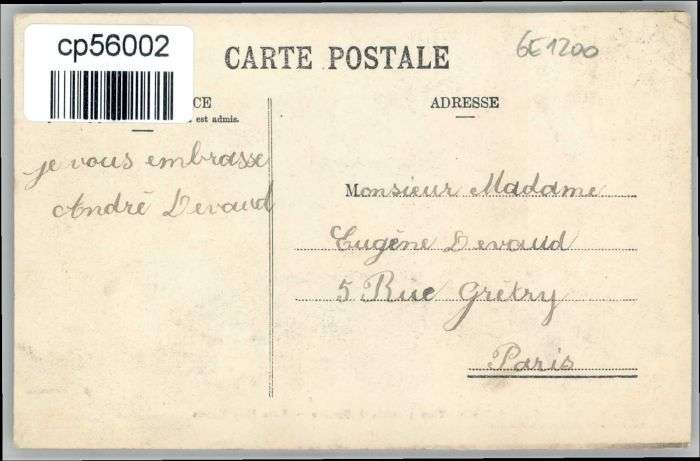 cp56002
CARTE POSTALE
6E1200
CE
est admis.
ADRESSE
je vous embrasse
André Devaud
Monsieur Madame
Eugène Devaud
5 Rue Grétry
Paris